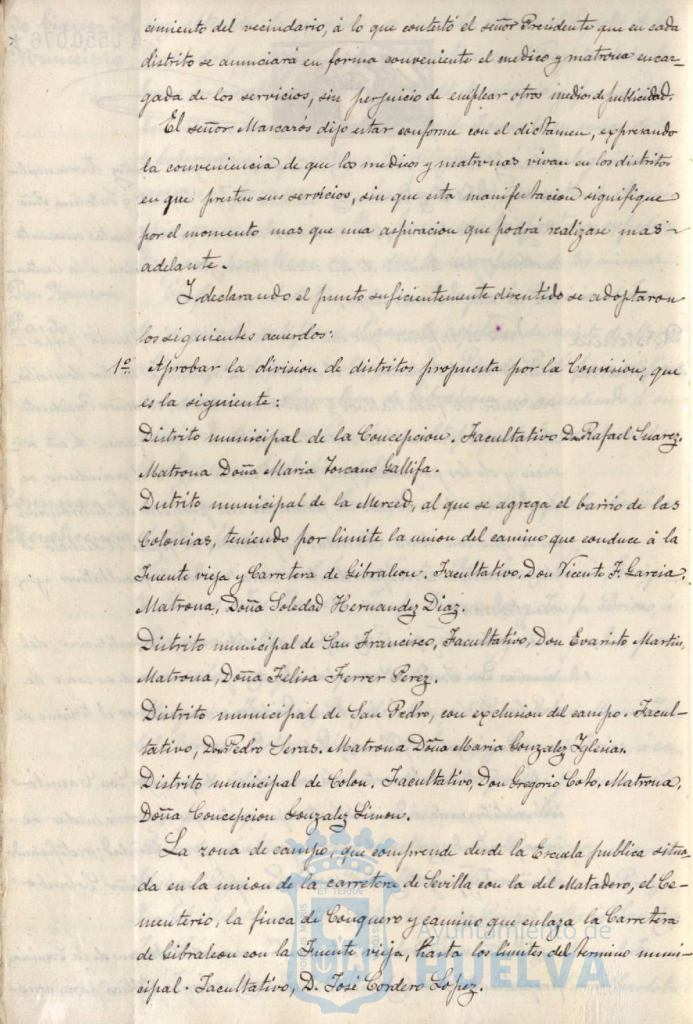 cimiento del vecindario, á lo que contestó el señor Presidente que en cada
distrito se anunciará en forma conveniente el medico y matrona encar-
gada de los servicios, sin perjuicio de emplear otros medios de publicidad.
El señor Mascarós dijo estar conforme con el dictamen, expresando
la conveniencia de que los medicos y matronas vivan en los distritos
en que presten sus servicios, sin que esta manifestacion signifique
por el momento mas que una aspiracion que podrá realizase mas
adelante.
Y declarando el punto suficientemente discutido se adoptaron
los siguientes acuerdos:
1º. Aprobar la division de distritos propuesta por la Comision, que
es la siguiente:
Distrito municipal de la Concepcion. Facultativo Don Rafael Suarez.
Matrona Doña Maria Toscano Gallifa.
Distrito municipal de la Merced, al que se agrega el barrio de las
Colonias, teniendo por limite la union del camino que conduce á la
Fuente vieja y Carretera de Gibraleon. Facultativo, Don Vicente F. Garcia.
Matrona, Doña Soledad Hernandez Diaz.
Distrito municipal de San Francisco, Facultativo, Don Evaristo Martin,
Matrona, Doña Felisa Ferrer Perez.
Distrito municipal de San Pedro, con exclusion del campo. Facul-
tativo, Don Pedro Seras. Matrona Doña Maria Gonzalez Iglesias.
Distrito municipal de Colon. Facultativo, Don Gregorio Coto, Matrona,
Doña Concepcion Gonzalez Limon.
La zona de campo, que comprende desde la Escuela publica situa-
da en la union de la carretera de Sevilla con la del Matadero, el Ce-
menterio, la finca de Conquero y camino que enlaza la Carretera
de Gibraleon con la Fuente vieja, hasta los limites del termino muni-
cipal. Facultativo, D. José Cordero Lopez.
Ayuntamiento de
HUELVA